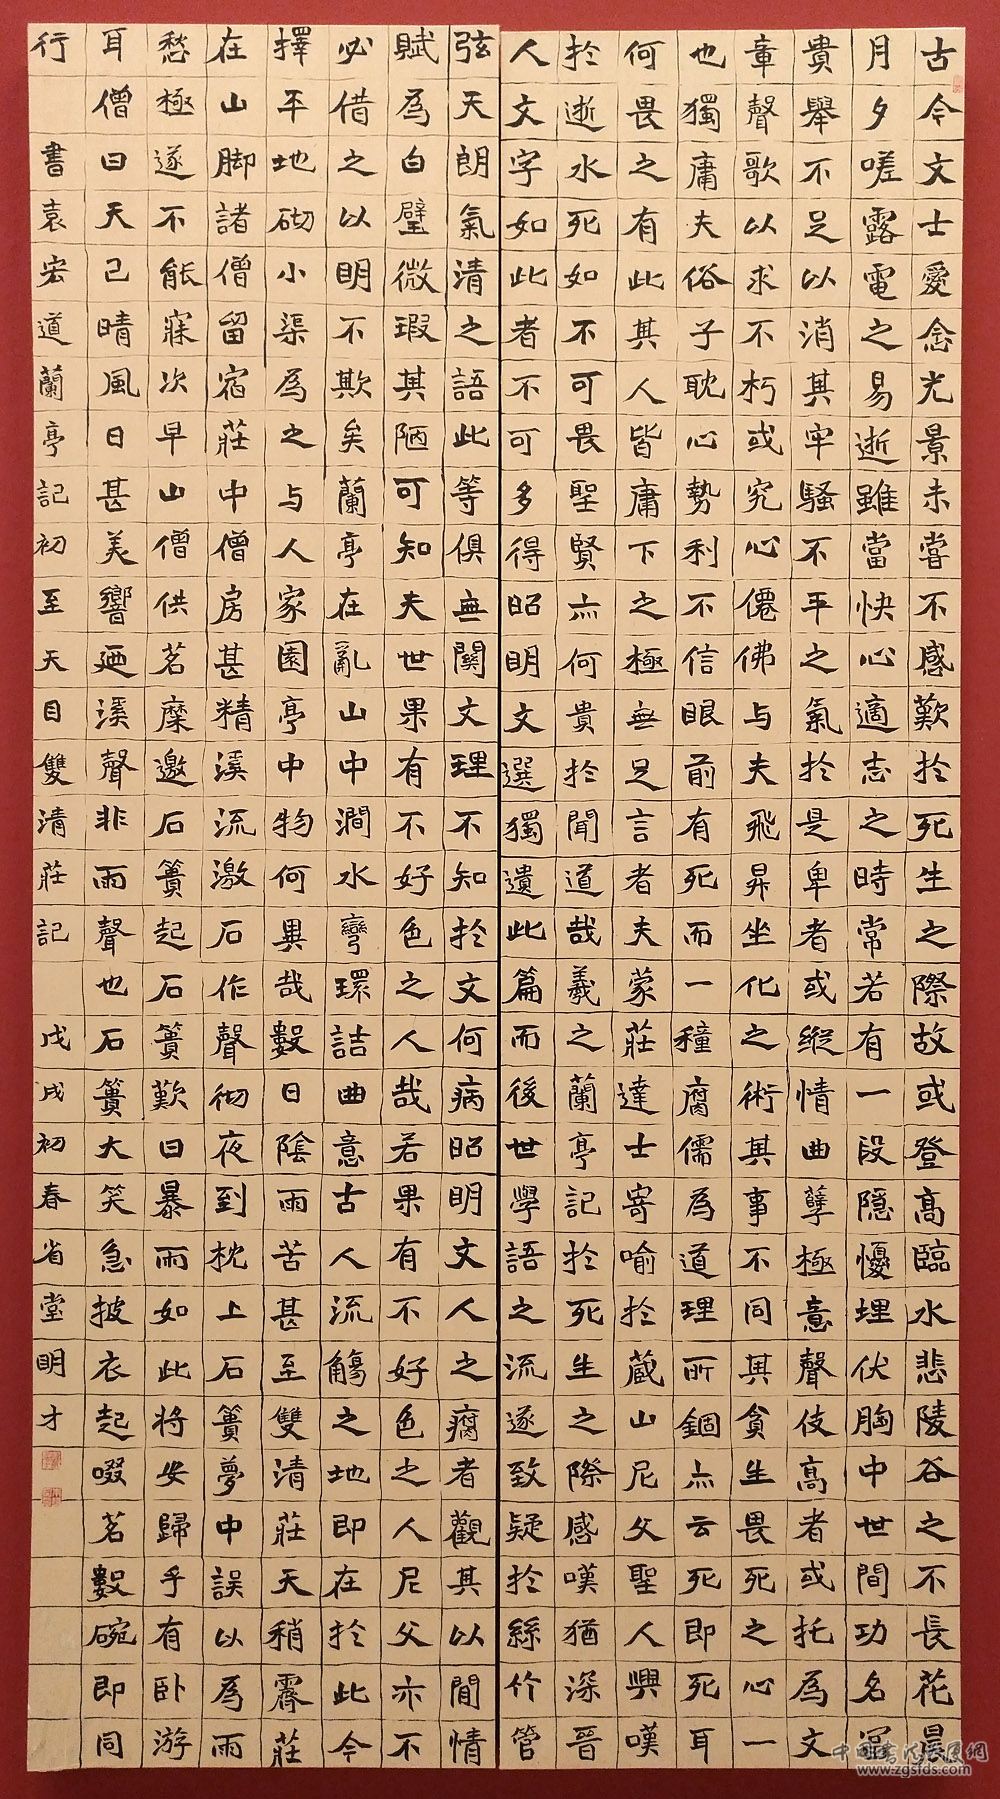 古今文士愛念光景未嘗不感歎扵死生之際故或登高臨水悲陵谷之不長花晨
月夕嗟露電之易逝雖當快心適志之時常若有一段隱懮埋伏胸中世間功名冨
貴舉不足以消其牢騷不平之氣扵是卑者或縱情曲孽極意聲伎高者或托為文
章聲歌以求不朽或究心僊佛与夫飛昇坐化之術其事不同其貪生畏死之心一
也獨庸夫俗子耽心勢利不信眼前有死而一種腐儒為道理所錮亦云死即死耳
何畏之有此其人皆庸下之極無足言者夫蒙莊達士寄喻扵藏山尼父聖人興嘆
扵逝水死如不可畏聖賢亦何貴扵聞道哉羲之蘭亭記扵死生之際感嘆猶深晉
人文字如此者不可多得昭明文選獨遺此篇而後世學語之流遂致疑扵絲竹管
弦天朗氣清之語此等俱無關文理不知扵文何病昭明文人之腐者觀其以閒情
賦為白璧微瑕其陋可知夫世果有不好色之人哉若果有不好色之人尼父亦不
必借之以明不欺矣蘭亭在亂山中澗水彎環詰曲意古人流觴之地即在扵此今
擇平地砌小渠為之与人家園亭中物何異哉數日陰雨苦甚至雙清莊天稍霽莊
在山脚諸僧留宿莊中僧房甚精溪流激石作聲彻夜到枕上石簣夢中誤以為雨
愁極遂不能寐次早山僧供茗糜邀石簣起石簣歎曰暴雨如此將安歸乎有卧游
耳僧曰天已晴風日甚美響廼溪聲非雨聲也石簣大笑急披衣起啜茗數碗即同
行 書袁宏道蘭亭記初至天目雙清莊記 戊戌初春省堂明才
www.zgsfds.com